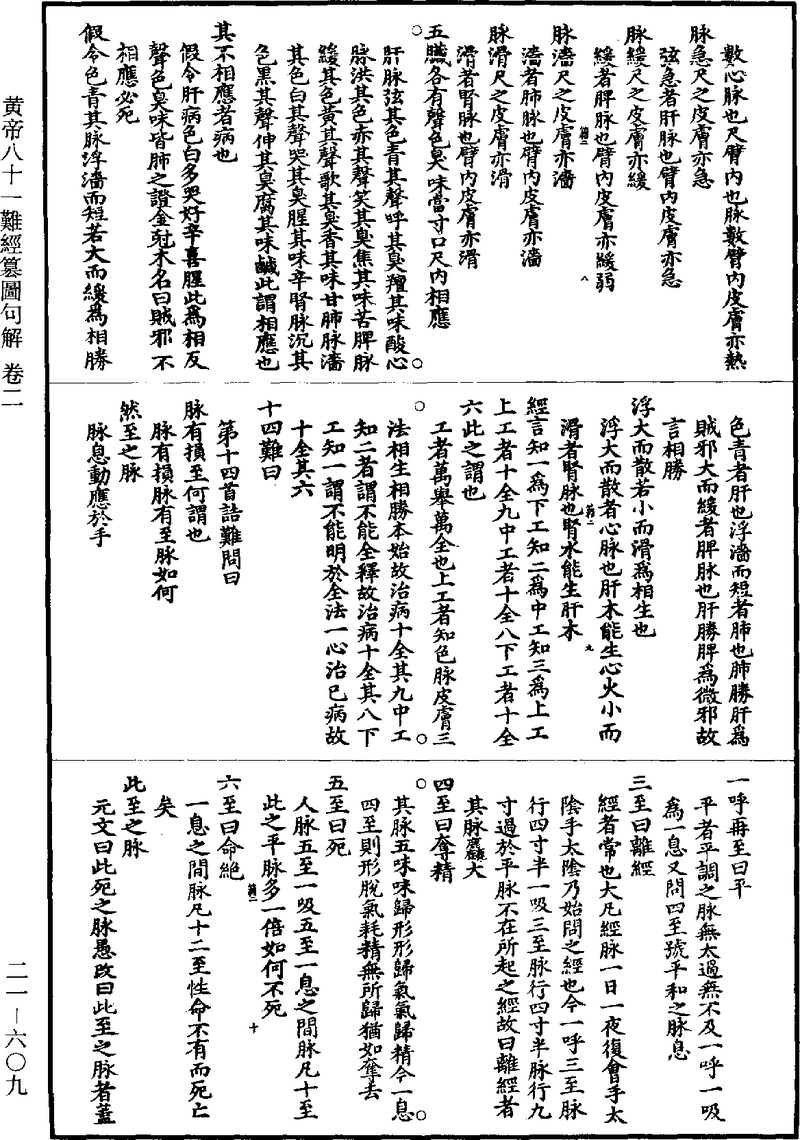 數心脉也尺臂内也脉數臂内皮膚亦熱
脉急尺之皮膚亦急
弦急者肝脉也臂内皮膚亦急
脉緩尺之皮膚亦緩
緩者脾脉也臂内皮膚亦緩弱
八
脉濇尺之皮膚亦濇
濇者肺脉也臂内皮膚亦濇
脉滑尺之皮膚亦滑
滑者腎脉也臂内皮膚亦滑
五臟各有聲色臭味當寸口尺内相應
肝脉弦其色青其聲呼其臭羶其味酸心
脉洪其色赤其聲笑其臭焦其味苦脾脉
緩其色黄其聲歌其臭香其味甘肺脉濇
其色白其聲哭其臭腥其味辛腎脉沉其
色黑其聲伸其臭腐其味鹹此謂相應也
其不相應者病也
假令肝病色白多哭好辛喜腥此為相反
聲色臭味皆肺之證金尅木名曰賊邪不
相應必死
假令色青其脉浮濇而短若大而緩為相勝
色青者肝也浮濇而短者肺也肺勝肝為
賊邪大而緩者脾脉也肝勝脾為微邪故
言相勝
浮大而散若小而滑為相生也
浮大而散者心脉也肝木能生心火小而
滑者腎脉也腎水能生肝木
九
經言知一為下工知二為中工知三為上工
上工者十全九中工者十全八下工者十全
六此之謂也
工者萬舉萬全也上工者知色脉皮膚三
法相生相勝本始故治病十全其九中工
知二者謂不能全釋故治病十全其八下
工知一謂不能明於全法一心治已病故
十全其六
十四難曰
第十四首詰難問曰
脉有損至何謂也
脉有損脉有至脉如何
然至之脉
脉息動應於手
一呼再至曰平
平者平調之脉無太過無不及一呼一吸
為一息又問四至號平和之脉息
三至曰離經
經者常也大凡經脉一日一夜復會手太
陰手太陰乃始問之經也今一呼三至脉
行四寸半一吸三至脉行四寸半脉行九
寸過於平脉不在所起之經故曰離經者
其脉麤大
四至曰奪精
其脉五味味歸形形歸氣氣歸精今一息
四至則形脱氣耗精無所歸猶如奪去
五至曰死
人脉五至一吸五至一息之間脉凡十至
此之平脉多一倍如何不死
十
六至曰命絶
一息之間脉凡十二至性命不有而死亡
矣
此至之脉
元文曰此死之脉愚改曰此至之脉者蓋
黄帝八十一難經纂圖句解 卷二
二一－六〇九